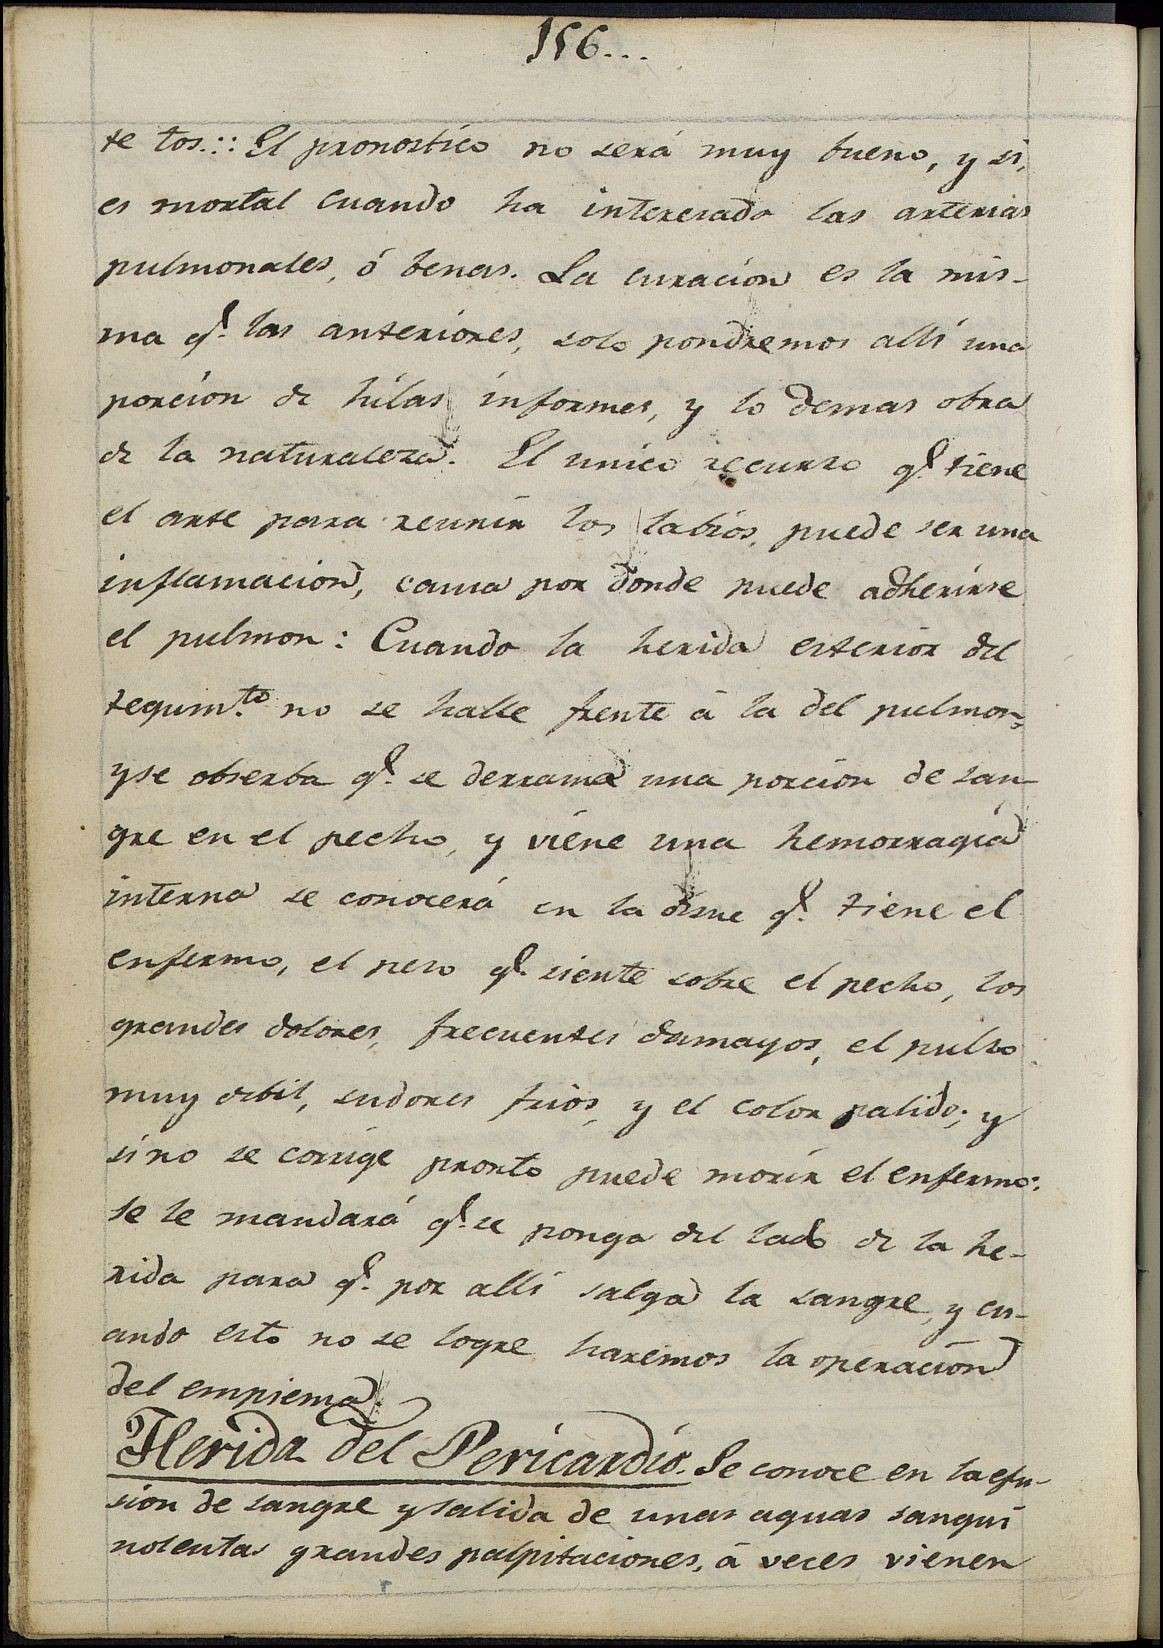 156...
te tos.:: El pronostico no será muy bueno, y si,
es mortal cuando ha interesado las arterias
pulmonales, ó benas. La curacion es la mis-
ma q.e las anteriores, solo pondremos allí una
porcion de hilas informes, y lo demas obra
de la naturaleza. El unico recurso q.e tiene
el arte para reunir los labios, puede ser una
inflamacion, causa por donde puede adherirse
el pulmon: Cuando la herida esterior del
tegum.to no se halle frente á la del pulmon,
y se obserba q.e se derrama una porcion de san-
gre en el pecho, y viene una hemorragia
interna se conocerá en la disne q.e tiene el
enfermo, el peso q.e siente sobre el pecho, los
grandes dolores, frecuentes desmayos, el pulso
muy debil, sudores frios, y el color palido; y
si no se corrige pronto puede morir el enfermo:
se le mandará q.e se ponga del lado de la he-
rida para q.e por allí salga la sangre, y cu-
ando esto no se logre haremos la operacion
del empiema.
Herida del Pericardio. Se conoce en la efu-
sion de sangre y salida de unas aguas sangui
nolentas grandes palpitaciones, á veces vienen